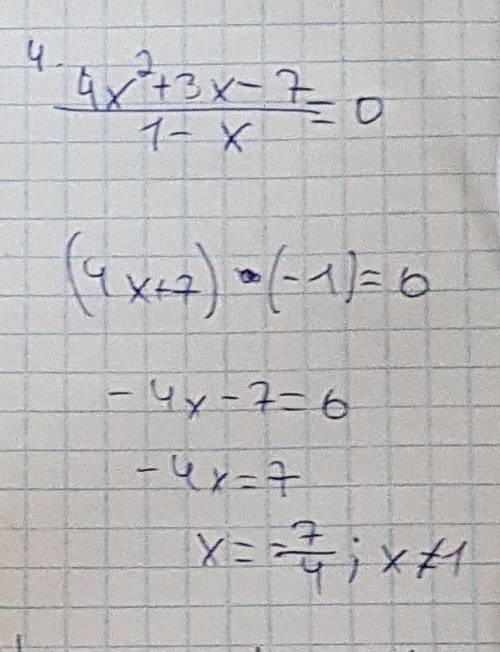 4.
4x²+3x-7
/ 1-x = 0
(4x+7)·(-1)=0
-4x-7=0
-4x=7
x=-7/4; x≠1